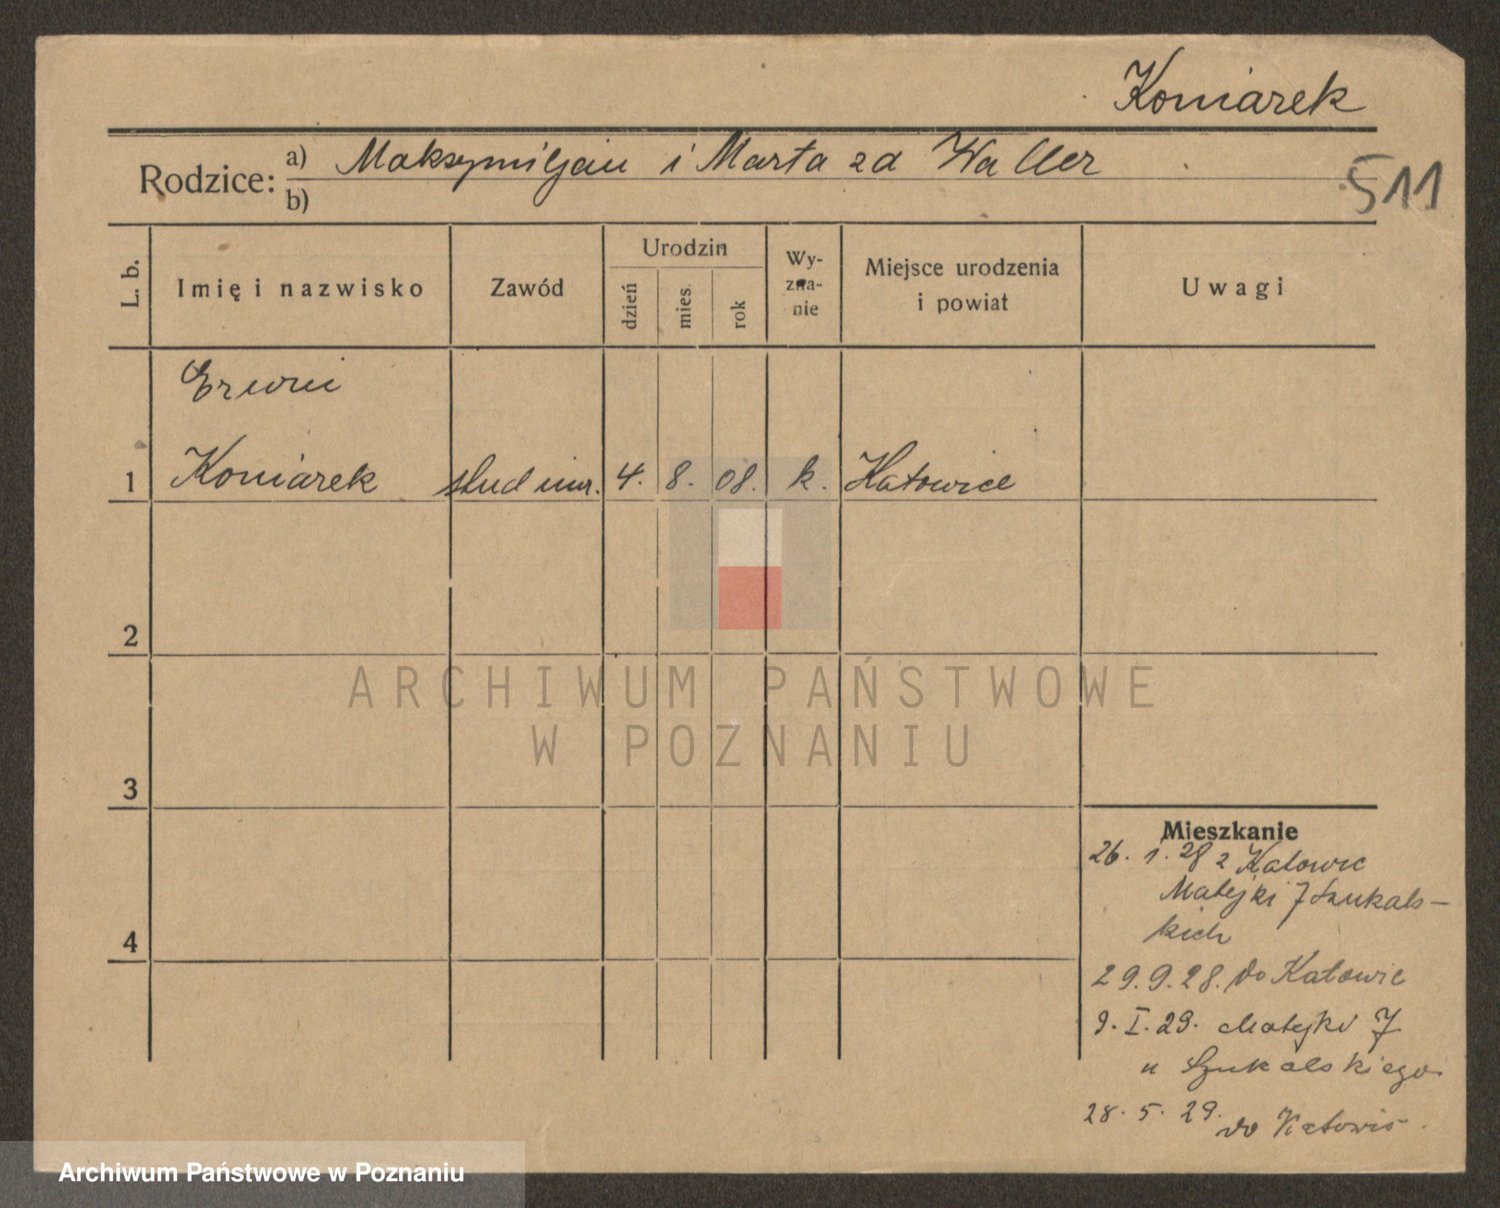 Koniarek
Rodzice: a) Maksymiljan i Marta zd Waller
b)
511
L. b.
Imię i nazwisko
Zawód
Urodzin
dzień
mies.
rok
Wy-
zna-
nie
Miejsce urodzenia
i powiat
Uwagi
Erwin
1 Koniarek stud 4. 8. 08. k. Katowice
2
3
4
ARCHIWUM PAŃSTWOWE
W POZNANIU
Mieszkanie
26. 1. 28 z Katowic
Matejki 7 Szukals-
kich
29. 9. 28. do Katowic
9. I. 29. Matejki 7
u Szukalskiego
28. 5. 29. do Katowic
Archiwum Państwowe w Poznaniu